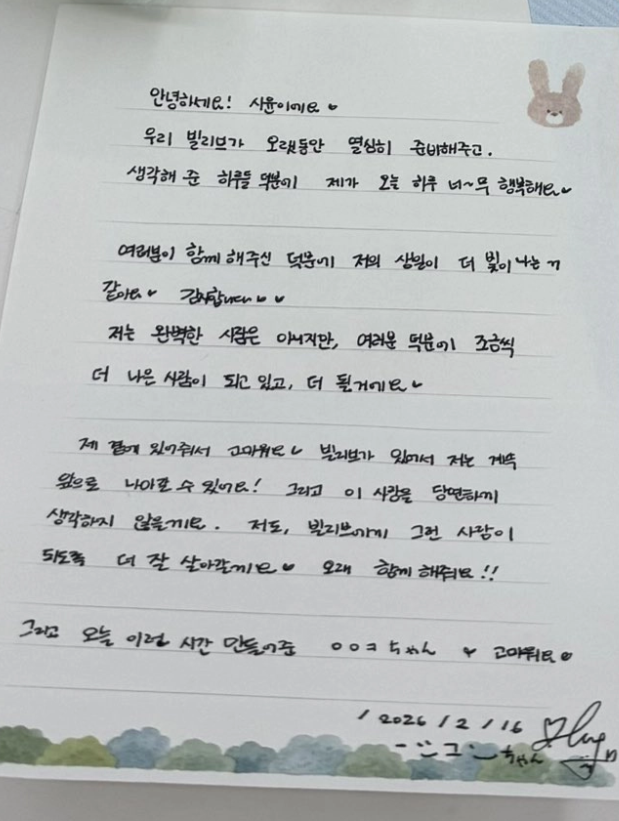 안녕하세요! 시윤이에요 ♥
우리 빌리브가 오랫동안 열심히 준비해주고.
생각해 준 하루들 덕분에 제가 오늘 하루 너~무 행복해요♥
여러분이 함께 해주신 덕분에 저의 생일이 더 빛이 나는 거
같아요♥ 감사합니다♥♥
저는 완벽한 사람은 아니지만, 여러분 덕분에 조금씩
더 나은 사람이 되고 있고, 더 될거에요♥
제 곁에 있어줘서 고마워요♥ 빌리브가 있어서 저는 계속
앞으로 나아갈 수 있어요! 그리고 이 사랑을 당연하게
생각하지 않을게요. 저도, 빌리브에게 그런 사람이
되도록 더 잘 살아갈게요♥ 오래 함께 해줘요!!
그리고 오늘 이런 시간 만들어준 ㅇㅇㅋちゃん ♥ 고마워요♥
2026/2/16
ちゃん